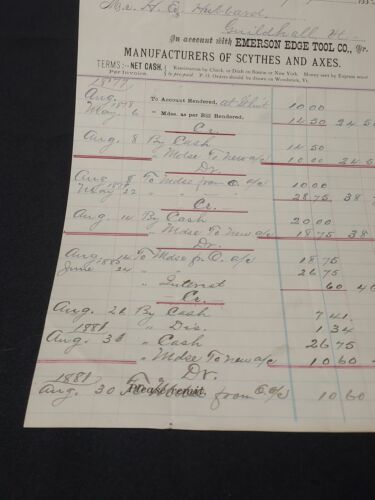 Mr. H. C. Hubbard,
Guildhall Vt.
In account with EMERSON EDGE TOOL CO., Dr.
MANUFACTURERS OF SCYTHES AND AXES.
TERMS:—NET CASH.
Per Invoice.
Remittances by Check, or Draft on Boston or New York. Money sent by Express must
be pre-paid. P. O. Orders should be drawn on Woodstock, Vt.
Aug. To Account Rendered, 10.00
May 6 " Mdse. as per Bill Rendered. 14 50 24 50
Cr.
Aug. 8 By Cash 14 50
" Mdse To New a/c 10 00 24
Dr.
Aug. 8 To Mdse from O. a/c 10.00
May 22 " " 28.75 38
Cr.
Aug. 14 By Cash 20.00
" Mdse To New a/c 18 75 38
Dr.
Aug. 14 To Mdse for O. a/c 18 75
June 24 " 26 75
" Interest 60
Cr.
Aug. 26 By Cash 7 41
1881 " Dis. 1 34
Aug. " Cash 26 75
" Mdse To new a/c 10 60
Dr.
1881
Please remit.
Aug. 30 from O. a/c 10 60